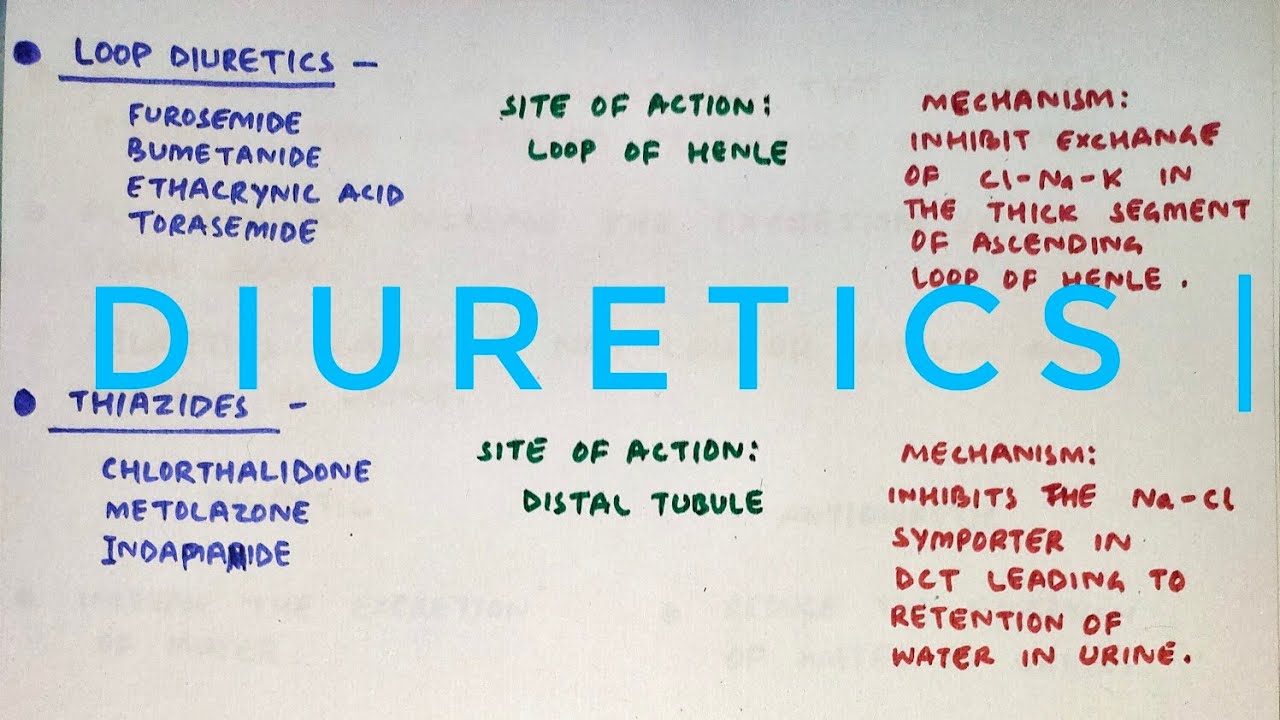 LOOP DIURETICS –
FUROSEMIDE
BUMETANIDE
ETHACRYNIC ACID
TORASEMIDE
SITE OF ACTION:
LOOP OF HENLE
MECHANISM:
INHIBIT EXCHANGE
OF Cl-Na-K IN
THE THICK SEGMENT
OF ASCENDING
LOOP OF HENLE.
DIURETICS |
THIAZIDES –
CHLORTHALIDONE
METOLAZONE
SITE OF ACTION:
DISTAL TUBULE
MECHANISM:
INHIBITS THE Na-Cl
SYMPORTER IN
DCT LEADING TO
RETENTION OF
WATER IN URINE.